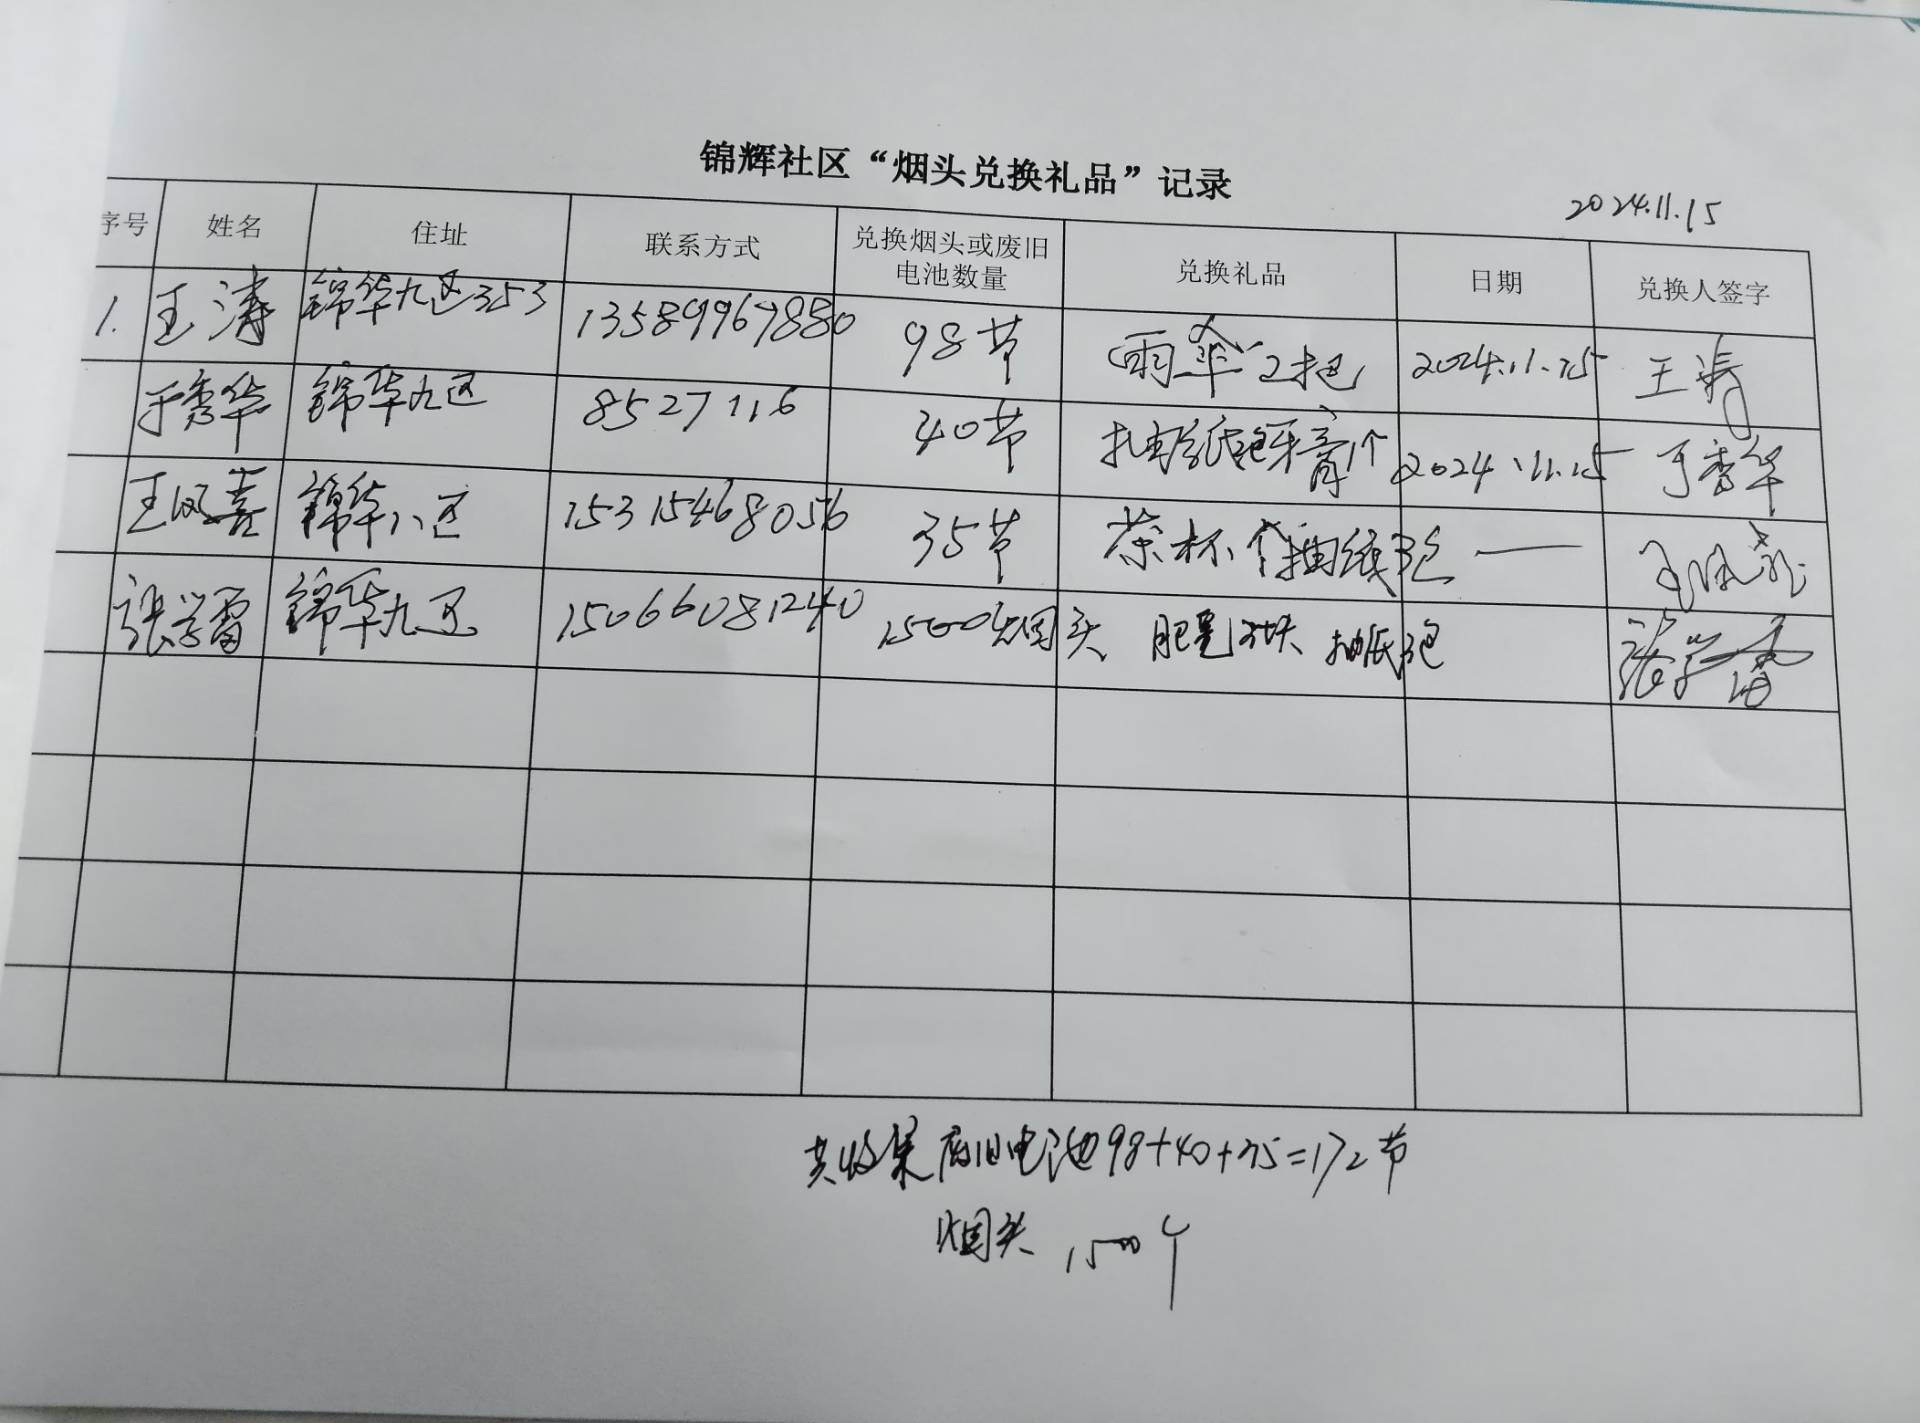 锦辉社区“烟头兑换礼品”记录
2024.11.15
序号 姓名 住址 联系方式 兑换烟头或废旧电池数量 兑换礼品 日期 兑换人签字
1. 王涛 锦华九区353 13589969880 98节 雨伞2把 2024.11.15 王涛
于秀华 锦华九区 8527116 40节 抽纸 牙膏1个 2024.11.15 于秀华
王凤喜 锦华八区 15315468056 35节 茶杯1个 —— 王凤喜
张学雷 锦华九区 15066081240 1500烟头 肥皂 块 抽纸 包 张学雷
共收集废旧电池98+40+35=172节
烟头 1500个